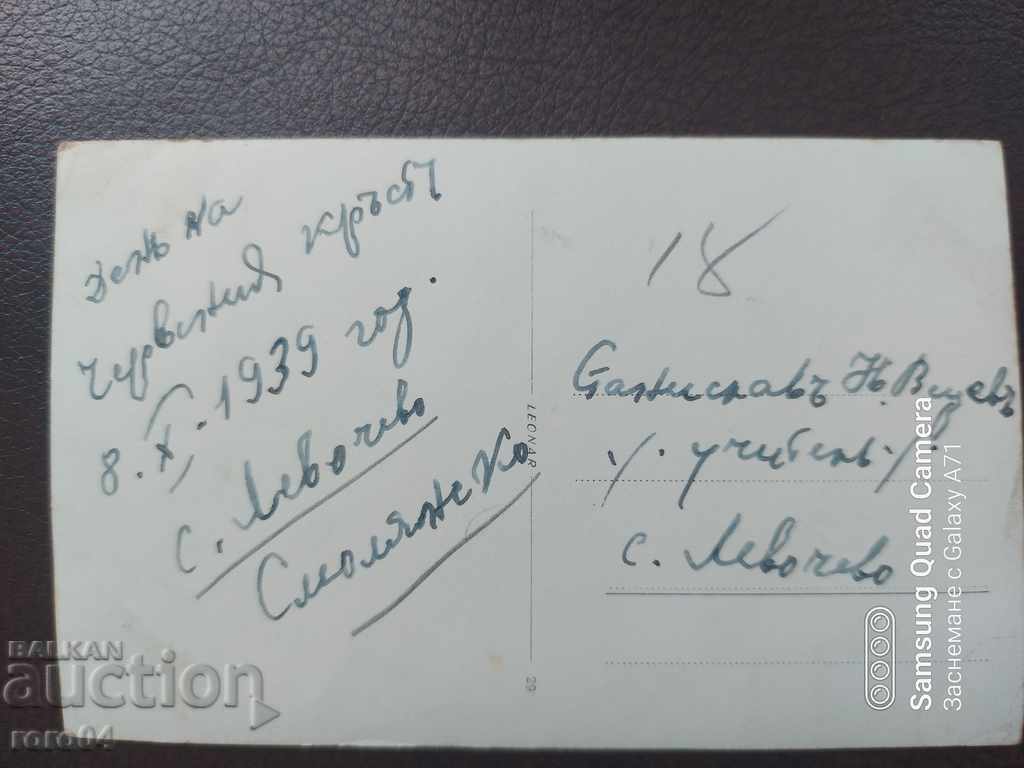 день на
червения кръстъ
8.X.1939 год.
с. Левочево
Смолянско
18
Станиславъ Н.
/. учитель ./
с. Левочево
LEONAR
29
BALKAN
auction
roro04
Samsung Quad Camera
Заснемане с Galaxy A71